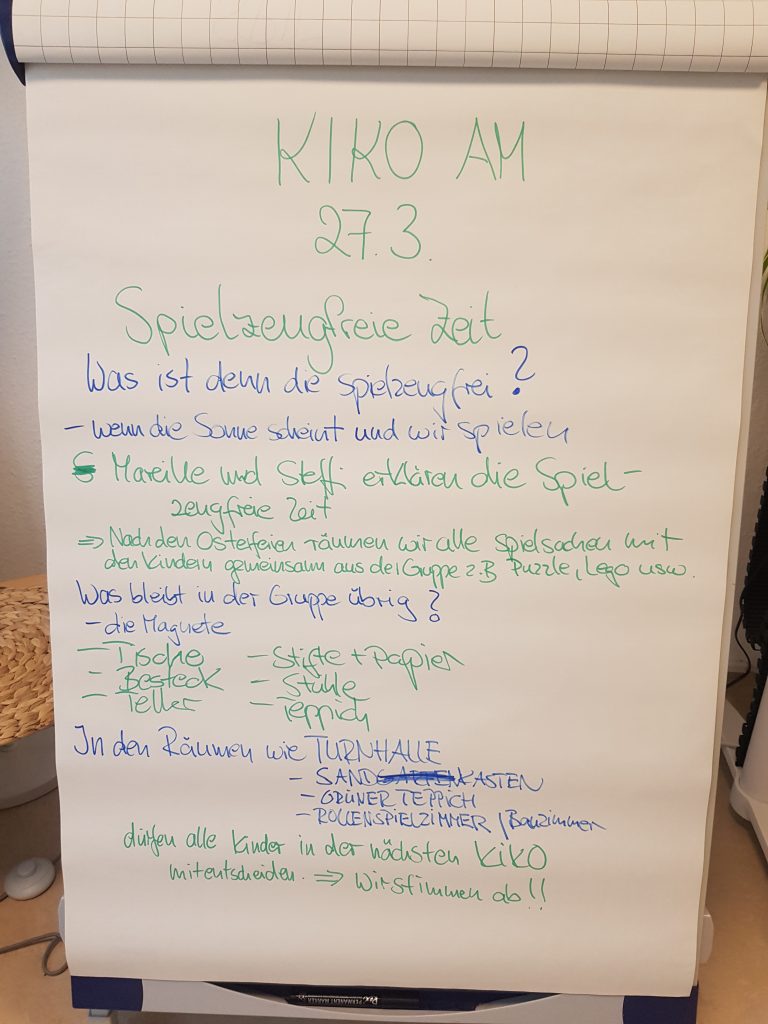 KIKO AM
27.3.
Spielzeugfreie Zeit
Was ist denn die spielzeugfrei?
- wenn die Sonne scheint und wir spielen
Mareille und Steffi erklären die Spiel-
zeugfreie Zeit
⇒ Nach den Osterferien räumen wir alle Spielsachen mit
den Kindern gemeinsam aus der Gruppe z.B Puzzle, Lego usw.
Was bleibt in der Gruppe übrig?
- die Magnete
- Tische - Stifte + Papier
- Besteck - Stühle
- Teller - Teppich
In den Räumen wie TURNHALLE
- SANDKASTEN
- GRÜNER TEPPICH
- ROLLENSPIELZIMMER / Bauzimmer
dürfen alle Kinder in der nächsten KiKO
mitentscheiden. ⇒ Wir stimmen ab!!
PERMANENT MARKER